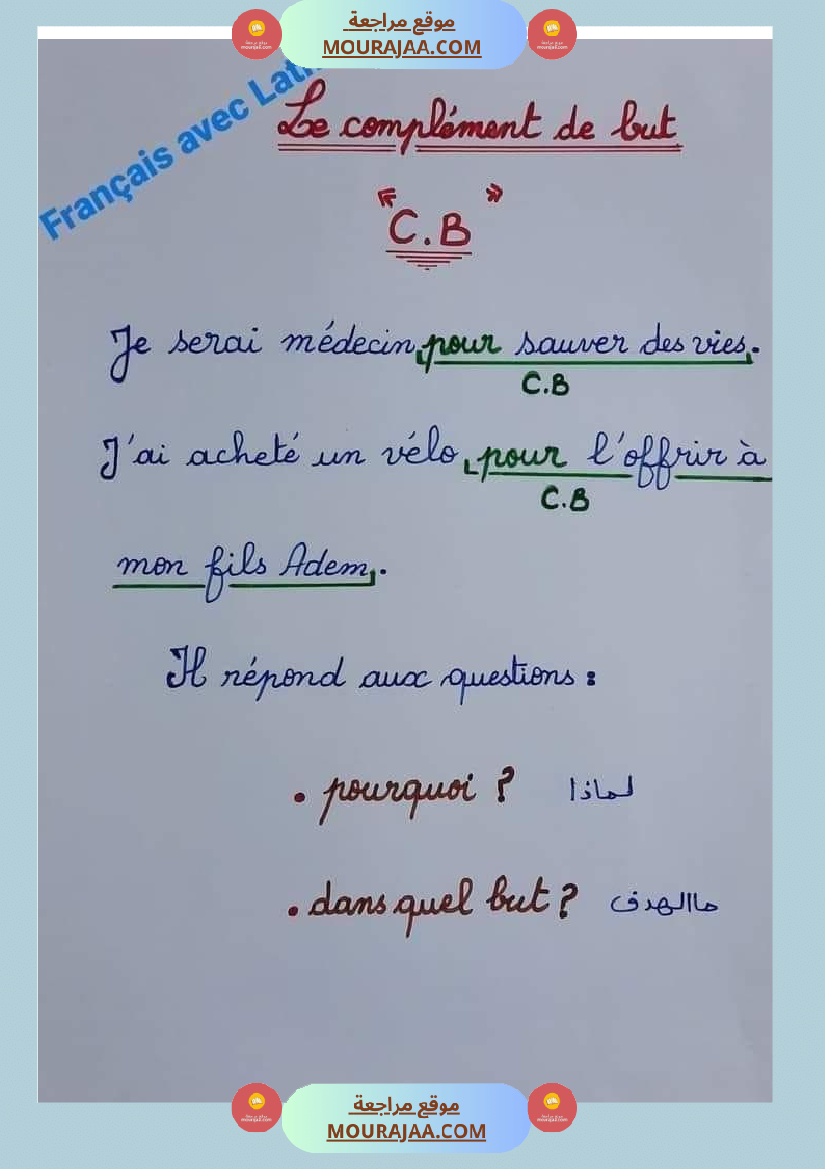 موقع مراجعة
MOURAJAA.COM
Français avec
Le complément de but
« C.B »
Je serai médecin pour sauver des vies.
C.B
J'ai acheté un vélo pour l'offrir à
C.B
mon fils Adem.
Il répond aux questions :
• pourquoi ? لماذا
• dans quel but ? ماالهدف
موقع مراجعة
MOURAJAA.COM